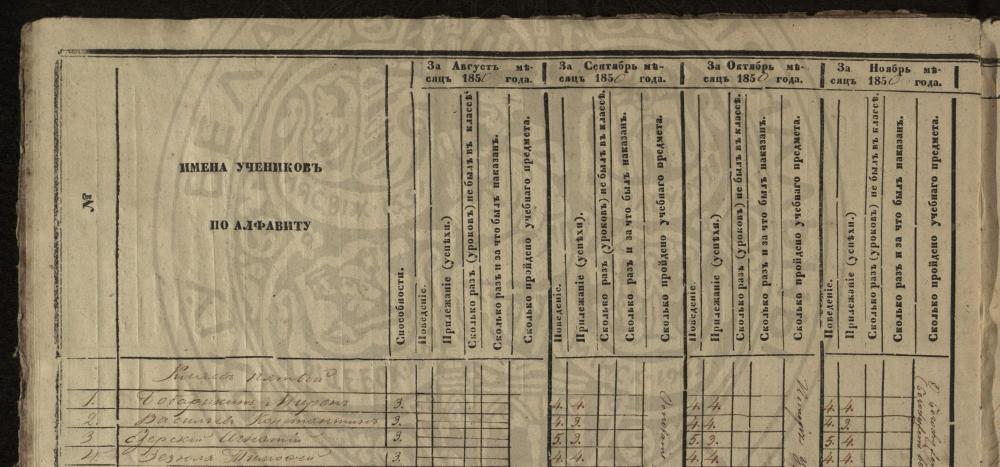 №
ИМЕНА УЧЕНИКОВЪ
ПО АЛФАВИТУ
Способности.
За Августъ мѣ-
сяцъ 1850 года.
Поведеніе.
Прилежаніе (успѣхи.)
Сколько разъ (уроковъ) не былъ въ классѣ.
Сколько разъ и за что былъ наказанъ.
Сколько пройдено учебнаго предмета.
За Сентябрь мѣ-
сяцъ 1850 года.
Поведеніе.
Прилежаніе (успѣхи).
Сколько разъ (уроковъ) не былъ въ классѣ.
Сколько разъ и за что былъ наказанъ.
Сколько пройдено учебнаго предмета.
За Октябрь мѣ-
сяцъ 1850 года.
Поведеніе.
Прилежаніе (успѣхи.)
Сколько разъ (уроковъ) не былъ въ классѣ.
Сколько разъ и за что былъ наказанъ.
Сколько пройдено учебнаго предмета.
За Ноябрь мѣ-
сяцъ 1850 года.
Поведеніе.
Прилежаніе (успѣхи.)
Сколько разъ (уроковъ) не былъ въ классѣ.
Сколько разъ и за что былъ наказанъ.
Сколько пройдено учебнаго предмета.
Классъ пятый
1. Миронъ 3. 4. 4. 4. 4. 4. 4.
2. Василевъ Константинъ 3. 4. 3. 4. 4. 4. 3.
3 Игнатій 3. 5. 3. 5. 3. 5. 4.
4 Тимофей 3. 4. 4. 4. 4. 4. 4.